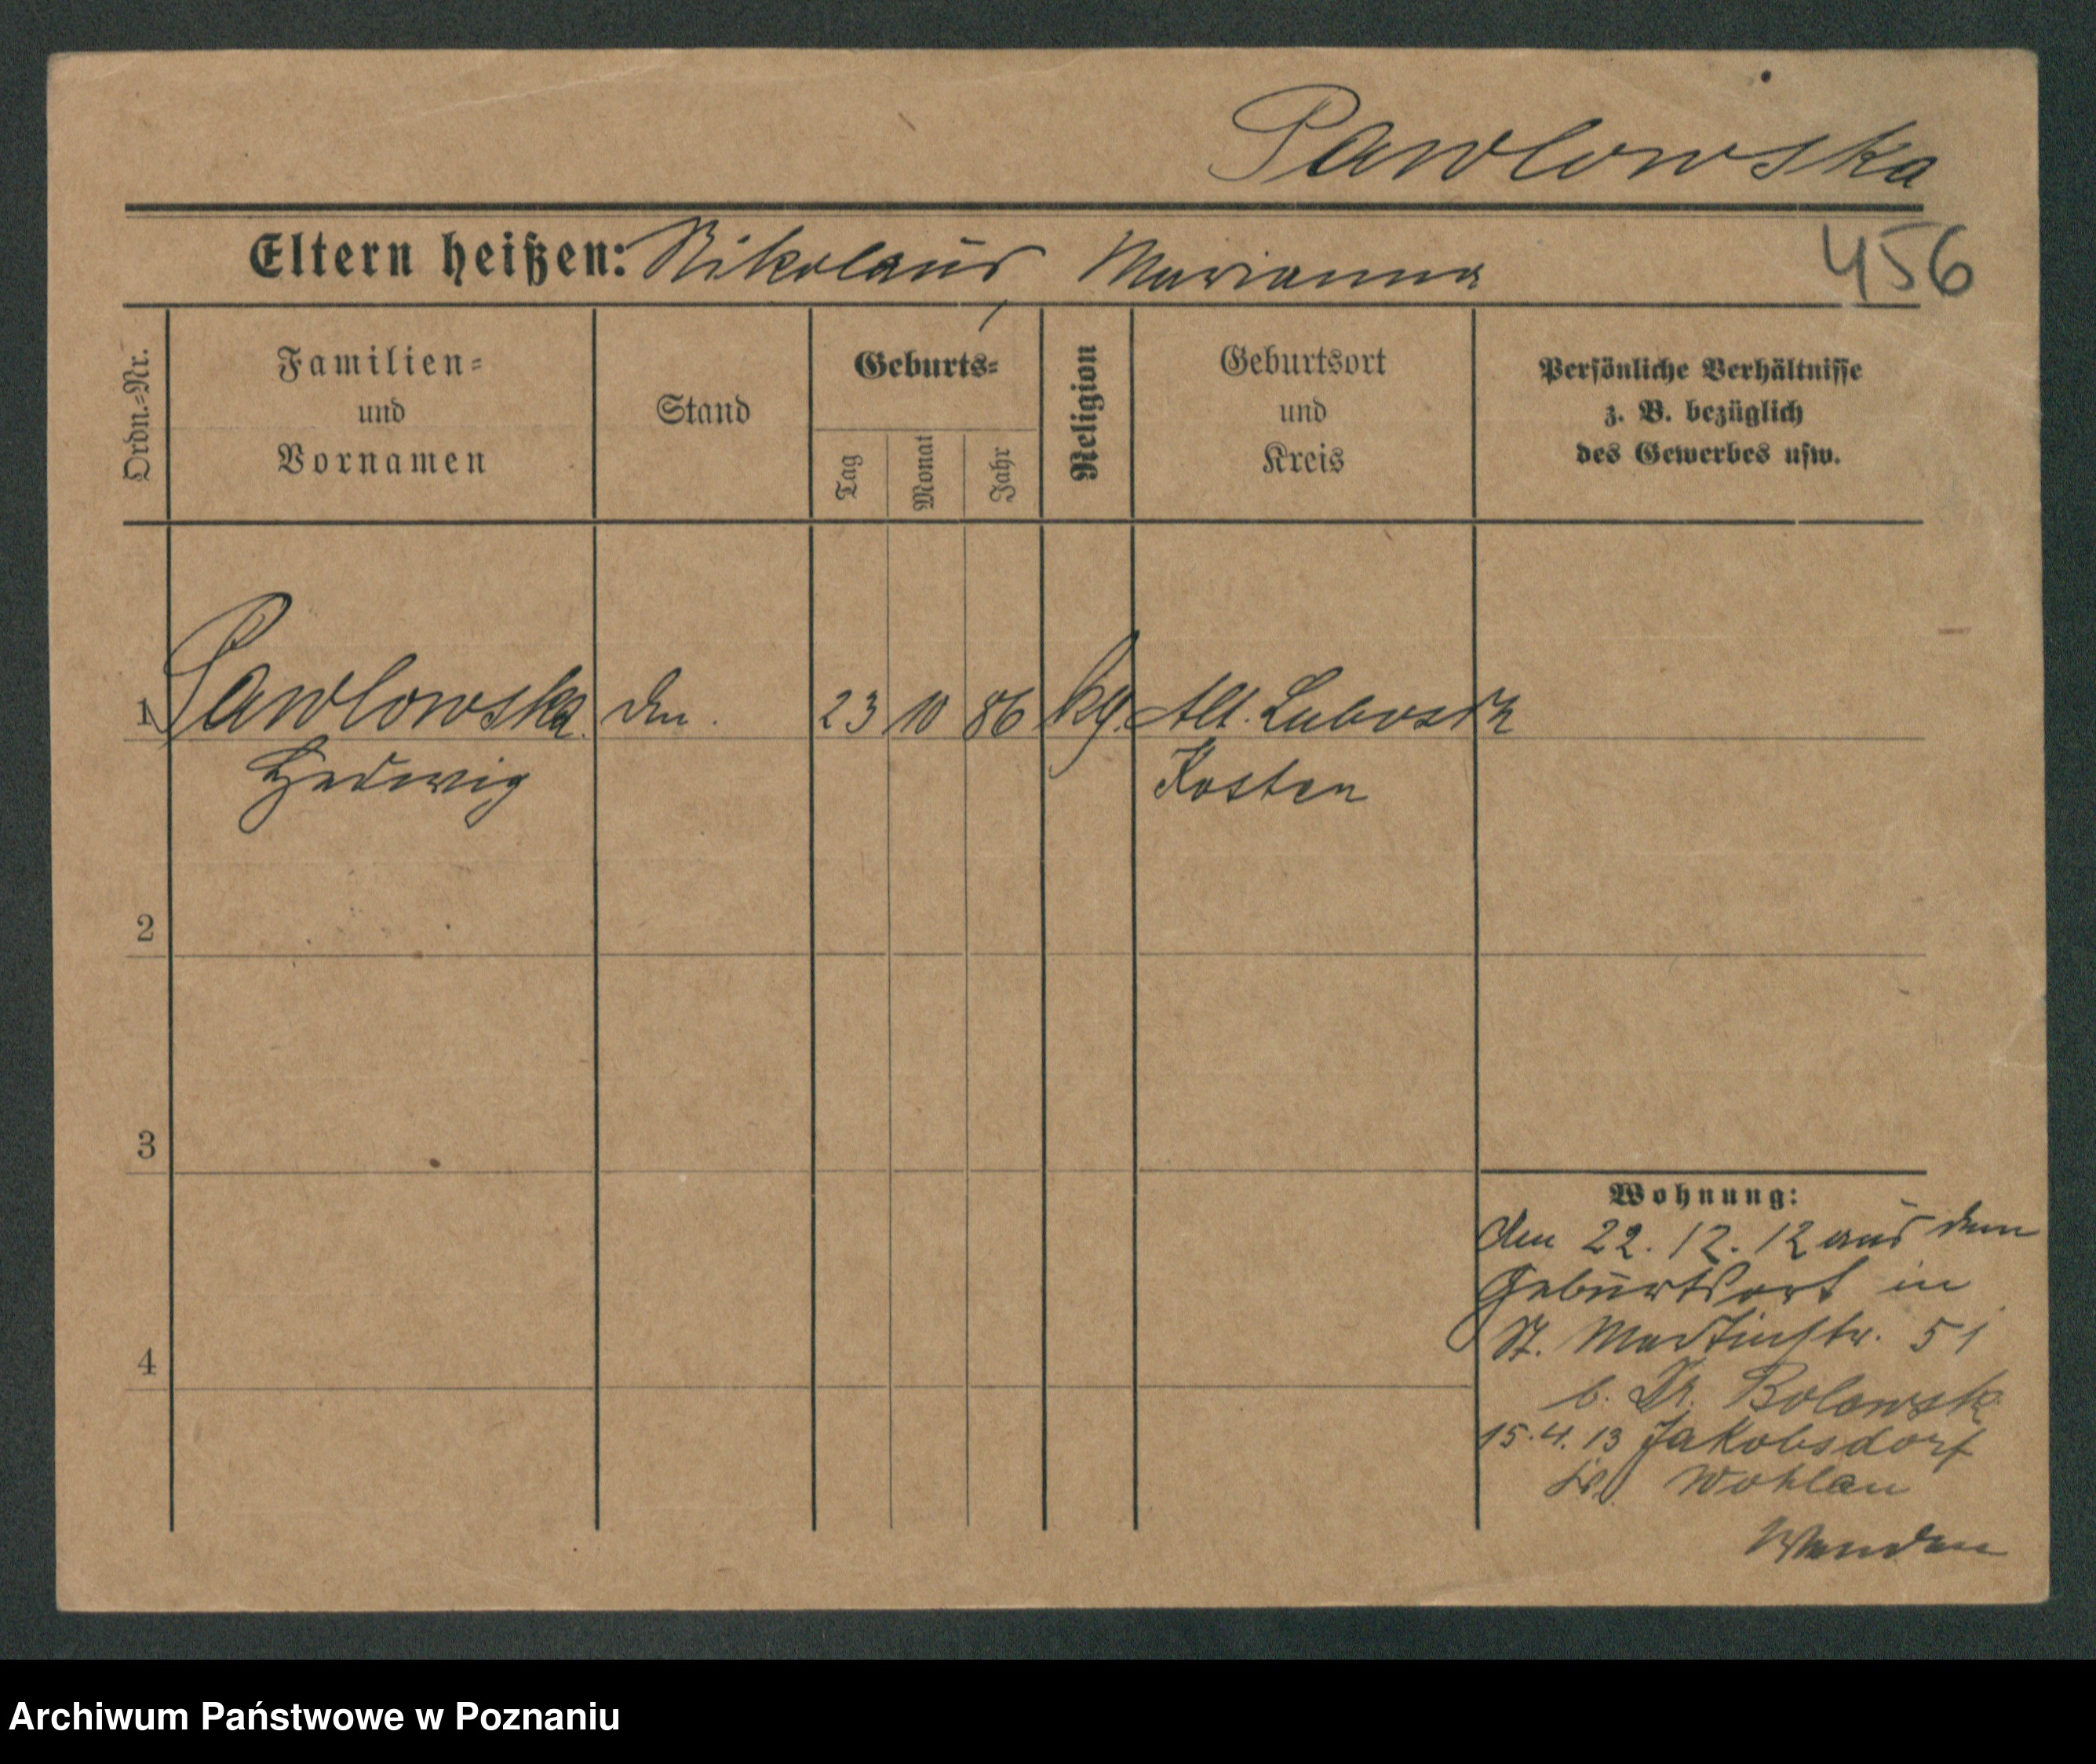 Pawlowska
Eltern heißen: Nikolaus Marianna
456
Ordn.=Nr.
Familien=
und
Vornamen
Stand
Geburts=
Tag
Monat
Jahr
Religion
Geburtsort
und
Kreis
Persönliche Verhältnisse
z. B. bezüglich
des Gewerbes usw.
1 Pawlowska 23 10 86 Alt. Lubosch
Hedwig Kosten
2
3
4
Wohnung:
den 22. 12. 12 aus dem
Geburtsort in
St. Martinstr. 51
b. Dr. Bolowsk
15. 4. 13 Jakobsdorf
Wohlau
Wenden
Archiwum Państwowe w Poznaniu